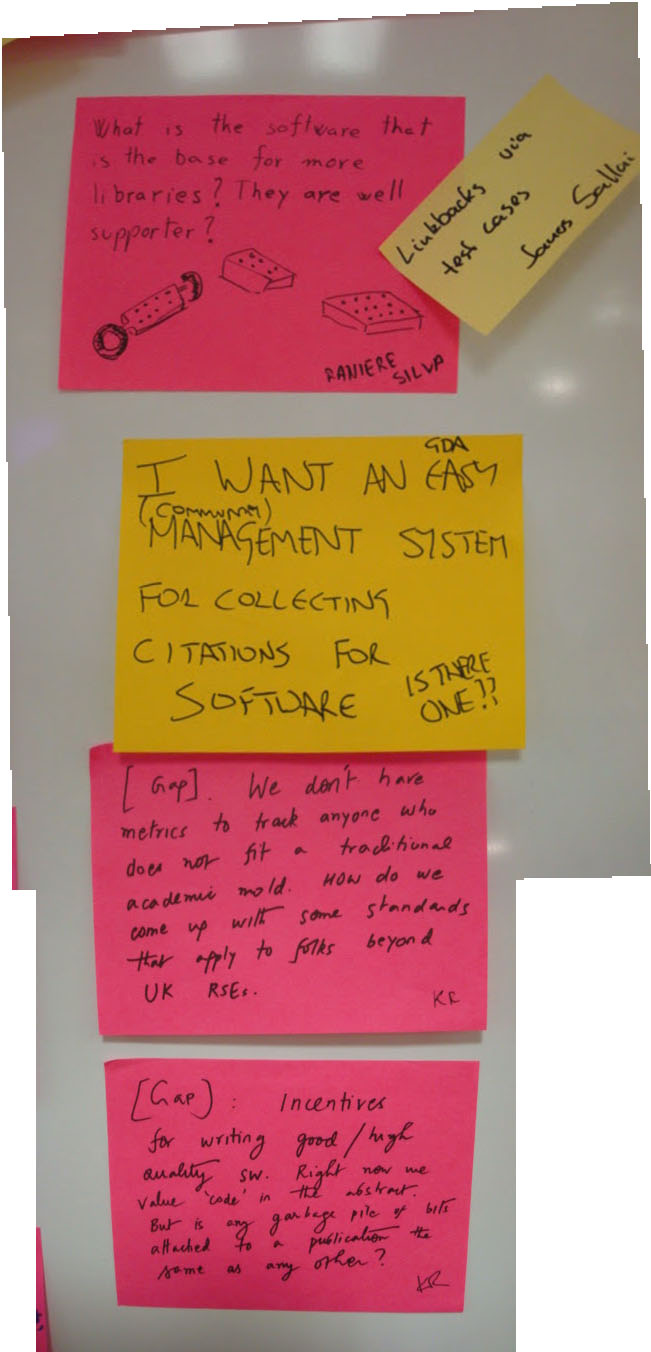 What is the software that
is the base for more
libraries? They are well
supporter?
RANIERE
SILVA
Linkbacks via
test cases
Janos Sallai
GDA
I WANT AN EASY
(COMMUNITY)
MANAGEMENT SYSTEM
FOR COLLECTING
CITATIONS FOR
SOFTWARE
IS THERE
ONE??
[Gap]. We don't have
metrics to track anyone who
does not fit a traditional
academic mold. How do we
come up with some standards
that apply to folks beyond
UK RSEs.
KR
[Gap]: Incentives
for writing good/high
quality sw. Right now we
value 'code' in the abstract.
But is any garbage pile of bits
attached to a publication the
same as any other?
KR